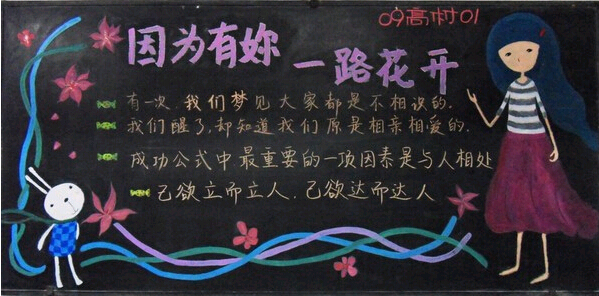 09高村01
因为有妳
一路花开
有一次,我们梦见大家都是不相识的.
我们醒了,却知道我们原是相亲相爱的.
成功公式中最重要的一项因素是与人相处
己欲立而立人.己欲达而达人